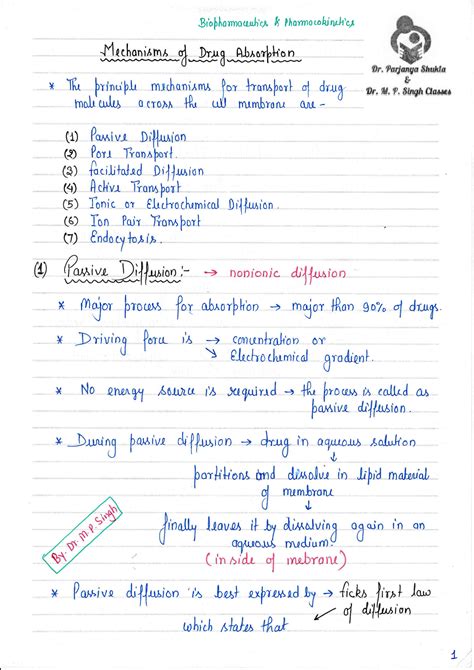 Biopharmaceutics & Pharmacokinetics
Dr. Parjanya Shukla
&
Dr. M. P. Singh Classes
Mechanisms of Drug Absorption
* The principle mechanisms for transport of drug
molecules across the cell membrane are -
(1) Passive Diffusion
(2) Pore Transport
(3) facilitated Diffusion
(4) Active Transport
(5) Ionic or Electrochemical Diffusion.
(6) Ion Pair Transport
(7) Endocytosis.
(1) Passive Diffusion:- → nonionic diffusion
* Major process for absorption → major than 90% of drugs.
* Driving force is → concentration or
↘ Electrochemical gradient.
* No energy source is required → the process is called as
passive diffusion.
* During passive diffusion → drug in aqueous solution
↓
partitions and dissolve in lipid material
of membrane
↓
finally leaves it by dissolving again in an
aqueous medium.
(in side of mebrane)
By. Dr. M. P. Singh
* Passive diffusion is best expressed by → ficks first law
of diffusion
which states that
1